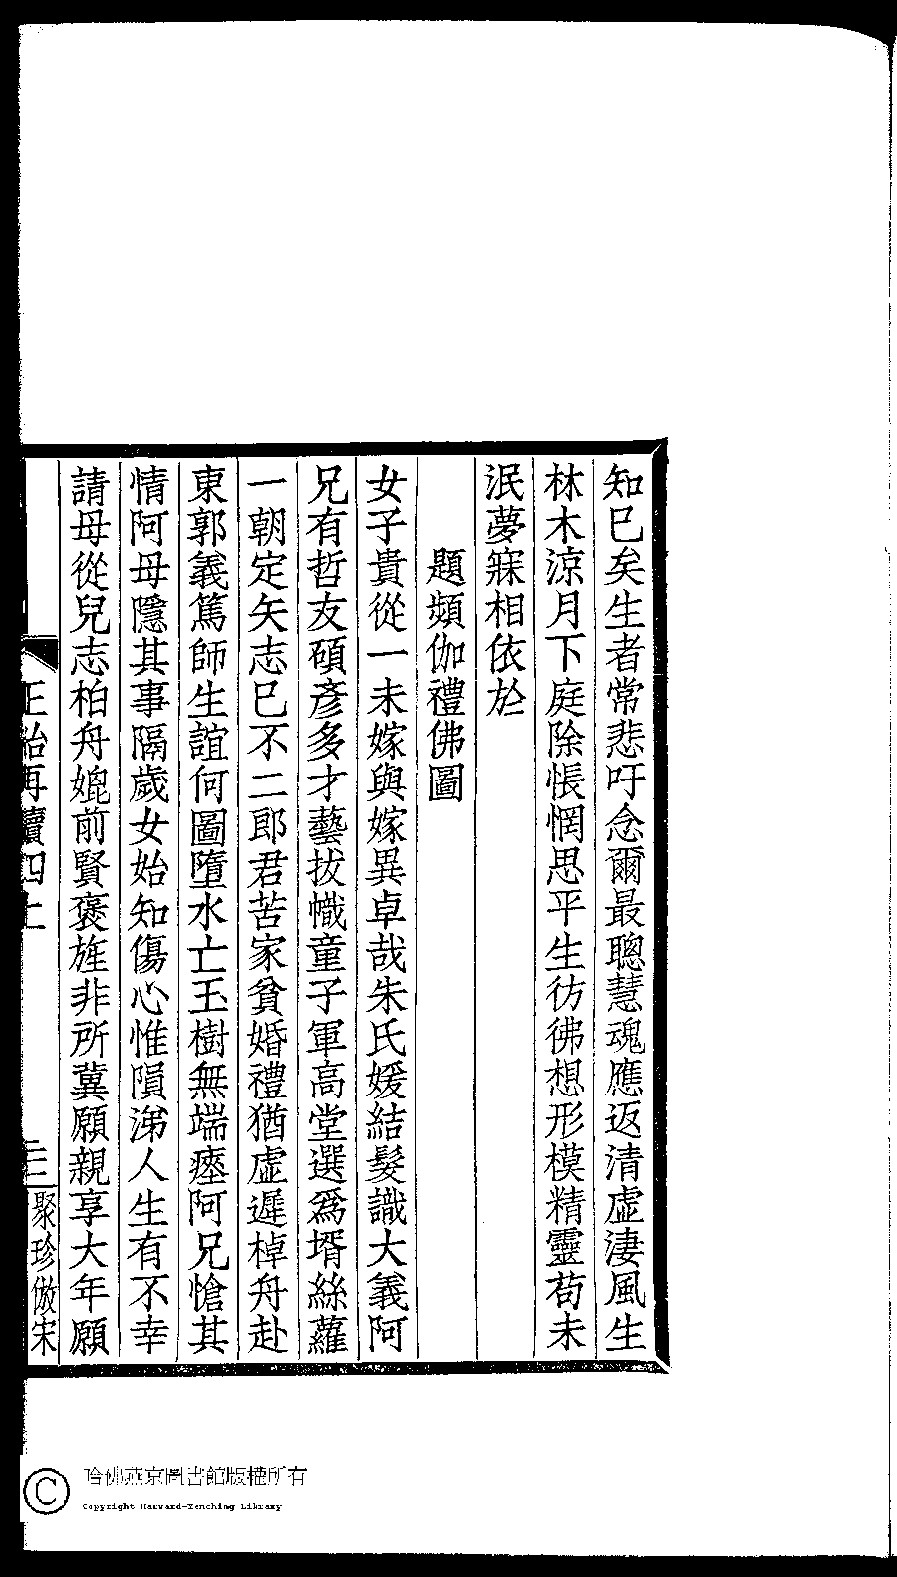 知已矣生者常悲吁念爾最聰慧魂應返清虛淒風生
林木涼月下庭除悵惘思平生彷彿想形模精靈苟未
泯夢寐相依於
題頻伽禮佛圖
女子貴從一未嫁與嫁異卓哉朱氏媛結髮識大義阿
兄有哲友碩彥多才藝拔幟童子軍高堂選爲壻絲蘿
一朝定矢志已不二郎君苦家貧婚禮猶虛遲棹舟赴
東郭義篤師生誼何圖墮水亡玉樹無端瘞阿兄愴其
情阿母隱其事隔歲女始知傷心惟隕涕人生有不幸
請母從兒志柏舟媲前賢褒旌非所冀願親享大年願
正始再續四上
聚珍倣宋
哈佛燕京圖書館版權所有
Copyright Harvard-Yenching Library